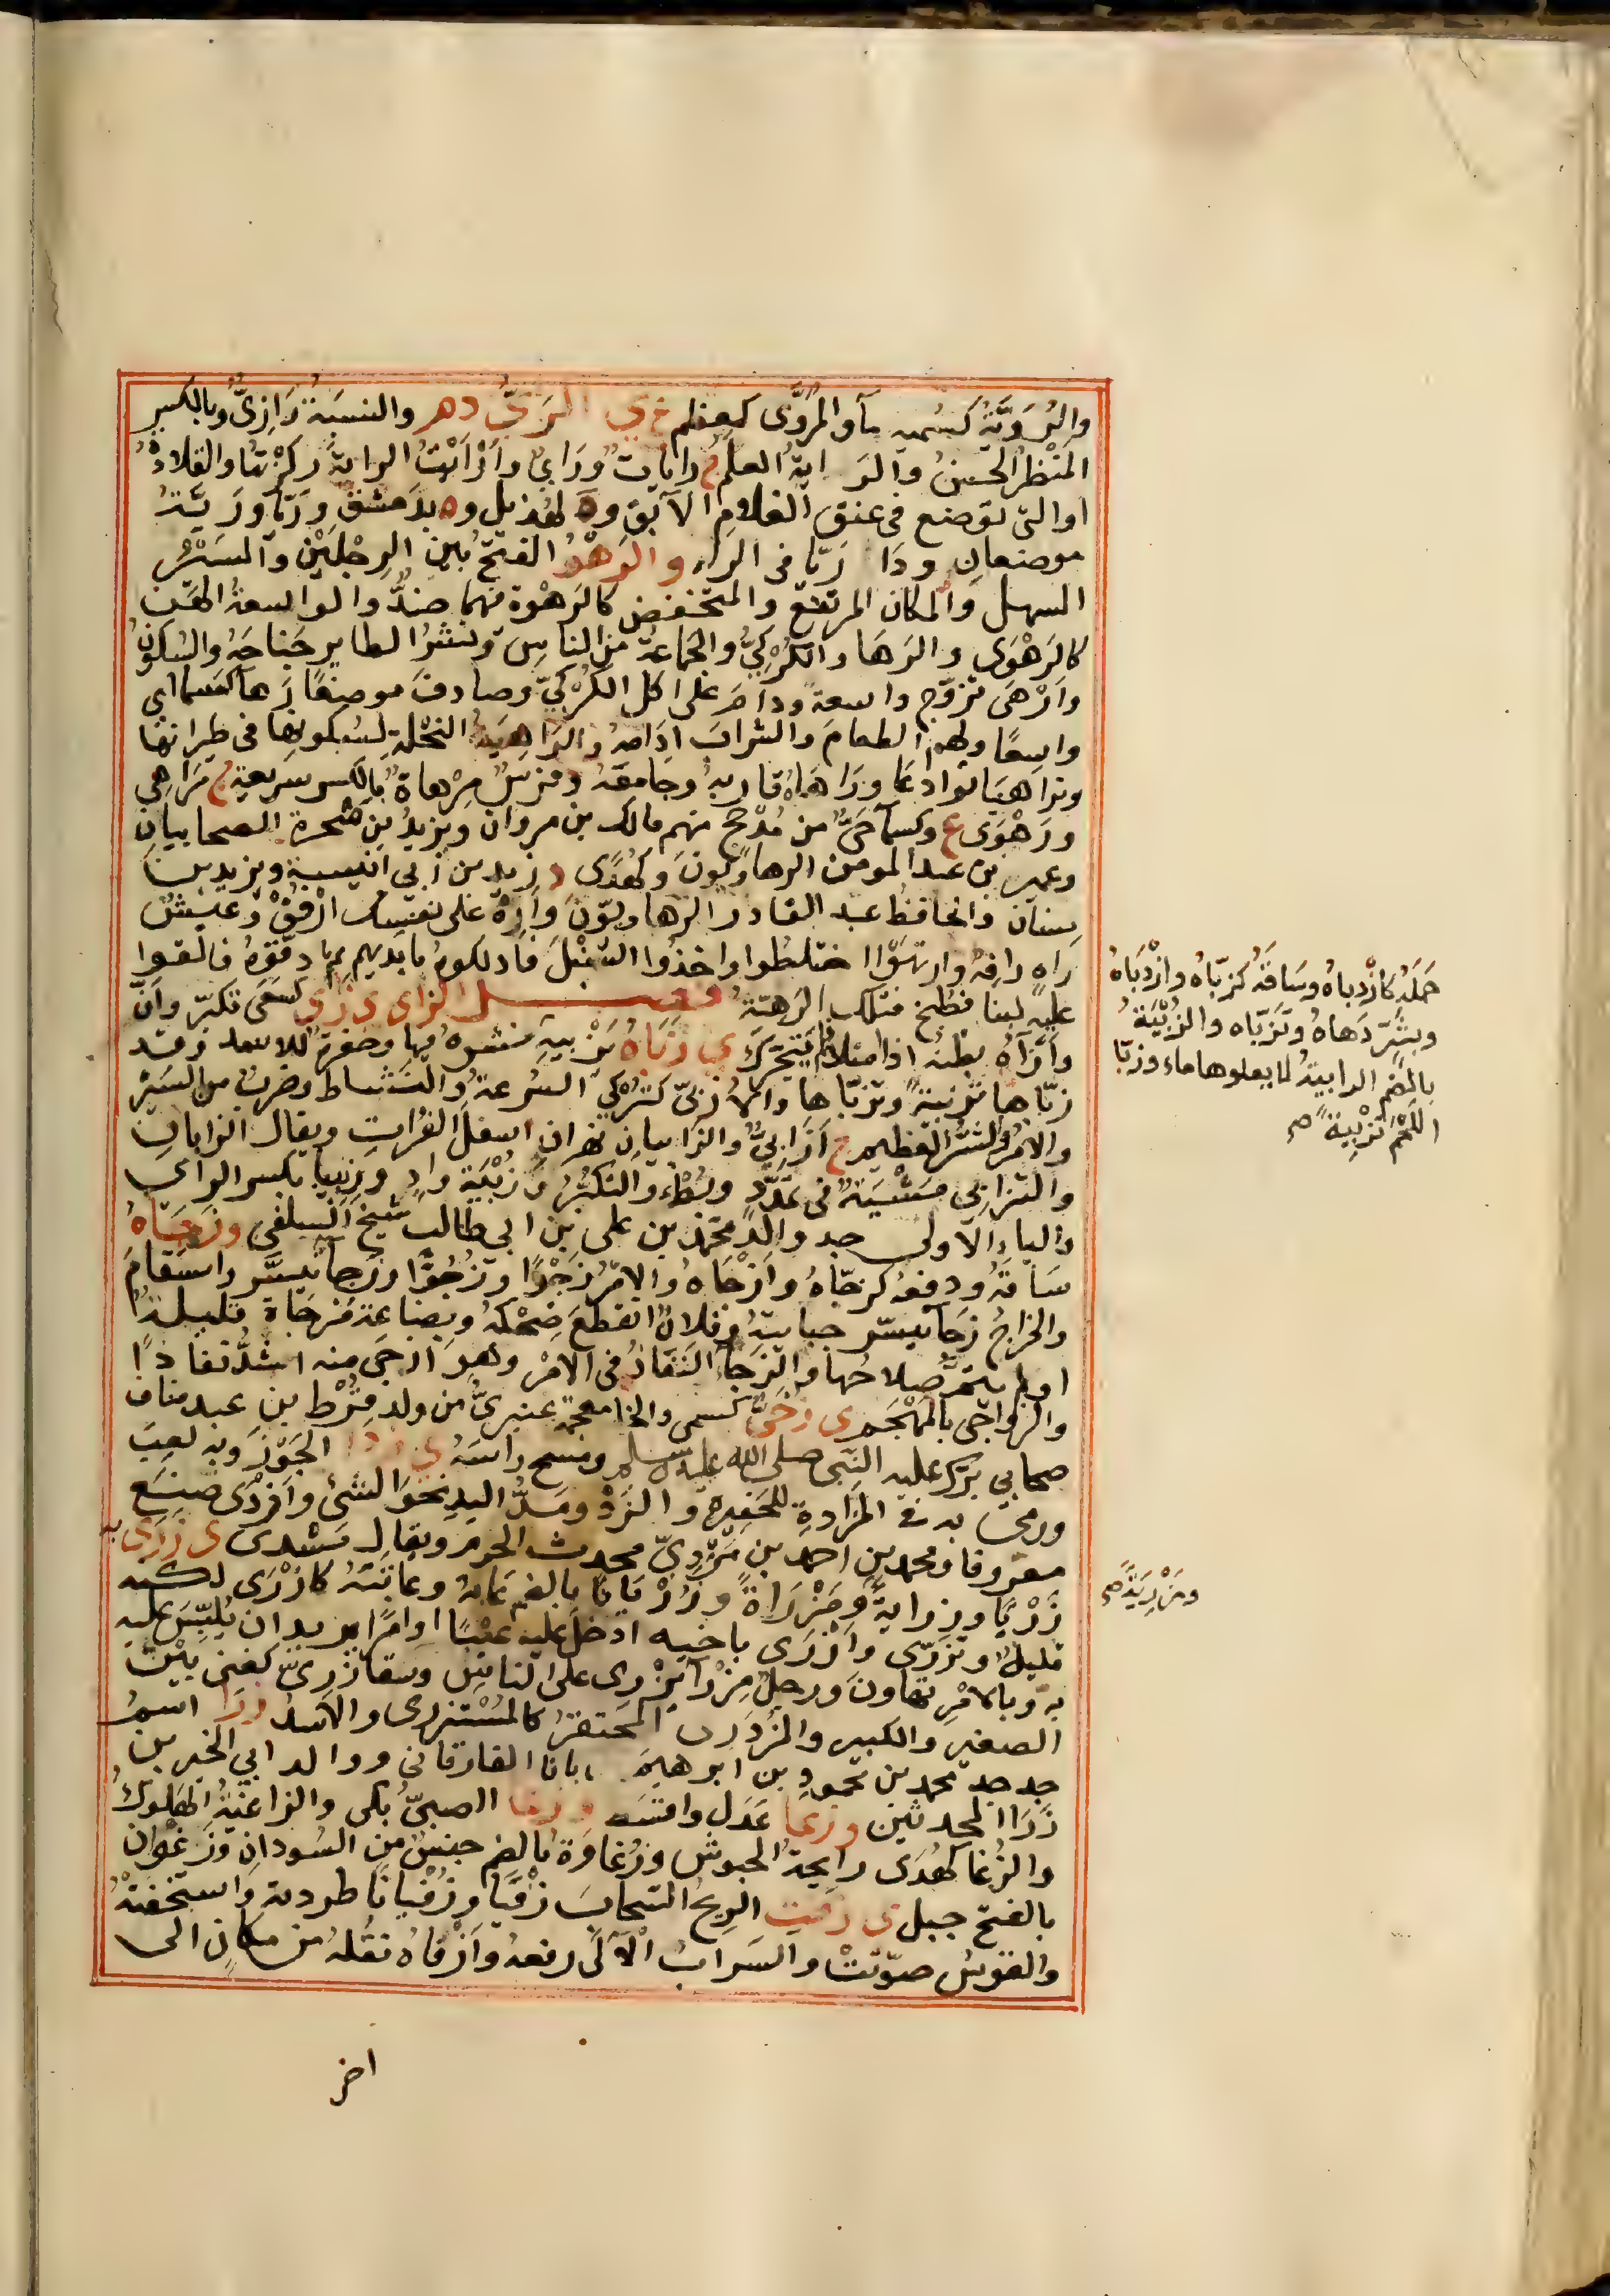 والرُوَيَّةُ كسُميه مآء والمُرَوَّى كمعظم ع ي الرَيُّ د هر والنسبَةُ رَازِيٌّ وبالكسر
المنْظرُ الحَسَنُ والرَايةُ العلَمُ ج رايات ورَايٌ وأرْأيْتُ الراية ركزْتها والقلادَةُ
او التى توضع فى عنق الغلامِ الآبق وة لهذيل وة بدمشق ورَيّا ورَيَّةُ
موضعانِ ودَارُ رَيّا فى الراء والرَهْوُ الفتحُ بين الرِجْلَيْن والسَيْرُ
السهل والمكان المرتفع والمنخفض كالرَهْوة فيهما ضدٌّ والواسعةُ الهَنِ
كالرَهْوَى والرَهَا والكُرْكِيُّ والجماعةُ من الناسِ ونشْرُ الطاير جَناحَهُ والسُكونُ
وأرْهَى تزوّج واسعةً ودامَ على أكل الكُرْكيّ وصادفَ موضعًا رَهاءً كسماءٍ اى
واسعًا ولهم الطعامَ والشرابَ ادَامهُ والراهِيَةُ النحْلة لسُكونها فى طيرانها
وتراهيَا توادعَا ورَاهَاهُ قاربهُ وحامقهُ وفرَسٌ مِرْهاةٌ بالكسر سريعة ج مَرَاهِي
ورَهْوَى ع وكسمآءٍ حَيٌّ من مُذْحج منهم مالك بن مروان ويزيدُ بن شجرة الصحابيان
وعمير بن عبد المومن الرهاويّونَ وكهُدًى د زيد بن أبى انيسة ويزيد بن
سِنان والحافظ عبد القادر الرُهاويّونَ وأرْهِ على نفسك ارْفُقْ وعيشٌ
راهٍ رافهٌ وارتهَوْا اختلطُوا واخذُوا السُنْبُلَ فادلكوهُ بايديهم ثم دقّقوهُ فالقوا
عليه لبنا فطُبخ فتلك الرَهيّة فصـــل الزاى ى زأى كسَعَى تكبّر وأنَّ
وأزآهُ بطنُه اذا امتلا فلم يتحرّك ي زَبَاهُ يَزْبِيهِ منشوهُ فيها وحفرةٌ للاسد وقد
زبّاها تزبيةً وتزبّاها والأُزْبِيُّ كتُرْكيٍّ السُرعةُ والنشاط وضربٌ من السَيْر
والامرُ والشرُّ العظيم ج أزَابِيُّ والزَابيان نهران اسفلَ الفُراتِ ويقال الزابانِ
والتزَابي مَشْيةٌ فى تمدُّدٍ وبُطْءٍ والتكبُّرُ وزُبْيَة وادٍ وزِبِيبَا بكسر الزاى
والباءِ الاولى جد والد محمد بن على بن ابى طالب شيخ السلفى وزجَاهُ
سَاقهُ ودفعهُ كزجّاهُ وأزْجَاهُ والامْرُ زَجْوًا وزُجُوًّا وزَجآءً تيسَّر واستقامَ
والخراجُ زجَآءً تيسّر جبايتهُ وفلانٌ انقطعَ ضِحْكهُ وبضاعة مُزْجَاة قليلةٌ
اولم يتمَّ صلاحُها والزَجآءُ النَفاذُ فى الامْر وهو أزجَى منه اشدُّ نفاذًا
والزواجى بالمَهْجَم ى زُخَيٌّ كسمى والخا معجمة عنبريٌّ من ولد قُرْط بن عبد مناف
صحابى برّك عليه النبّى صلى الله عليه وسلم ومسح راسَهُ ى زدَا الجَوْزَ وبه لعبَ
ورمى به فى المزْداةِ للحَفيرة والزَدْو ومَدُّ اليدِ نحوَ الشئ وأزْدَى صَنعَ
معروفا ومحمد بن احمد بن مَزْدِيّ محدث الحرم ويقال مَسْدى ى زَرَى به
زَرْيًا وزِرايةً ومَزْرَاةً وزُرْيَانًا بالضم عَابهُ وعاتَبَهُ كازْرَى لكنه
قليلٌ وتزرّى وأزْرَى باخيه ادخلَ عليه عيْبًا اوامْرًا يريد ان يُلبّسَ عليه
به وبالامْرِ تهاونَ ورجلٌ مِزْرآءُ يُزْرى على الناسِ وسقآءٌ زَرِيٌّ كغنى بيْنَ
الصغير والكبير والمُزْدَرِى المُحتقرُ كالمُسْتزرى والاسدُ وزَرَا اسمُ
جد جد محمد بن محمود بن ابرهيم باباا الفارقانى ووالد ابى الخير بن
زَرَا المحدثين وزعَا عَدَل واقسَط و زغَا الصبىُّ بكى والزاغيةُ الهَلوكُ
والزُغا كهُدَى رايحةُ الحبوش وزُغاوَة بالضم جنسٌ من السُودانِ وزَغْوان
بالفتح جبل ى زفَتِ الريحُ السحابَ زفْيًا وزَفَيانًا طردتهُ واستخفتهُ
والقوسُ صوّتتْ والسَرابُ الآلَ رفعهُ وأزْفاهُ نقلهُ من مكانٍ الى
حَمَلَهُ كازْدباهُ وسَاقَهُ كزبّاه وازْدَبَاهُ
وبشَرٍّ دَهاهُ وتَزَبّاه والزُبْيَةُ
بالضم الرابيةُ لا يعلوها ماء وزبّا
اللحْمَ تزْبيةً صح
ومَزْرِيَةً صح
اخر